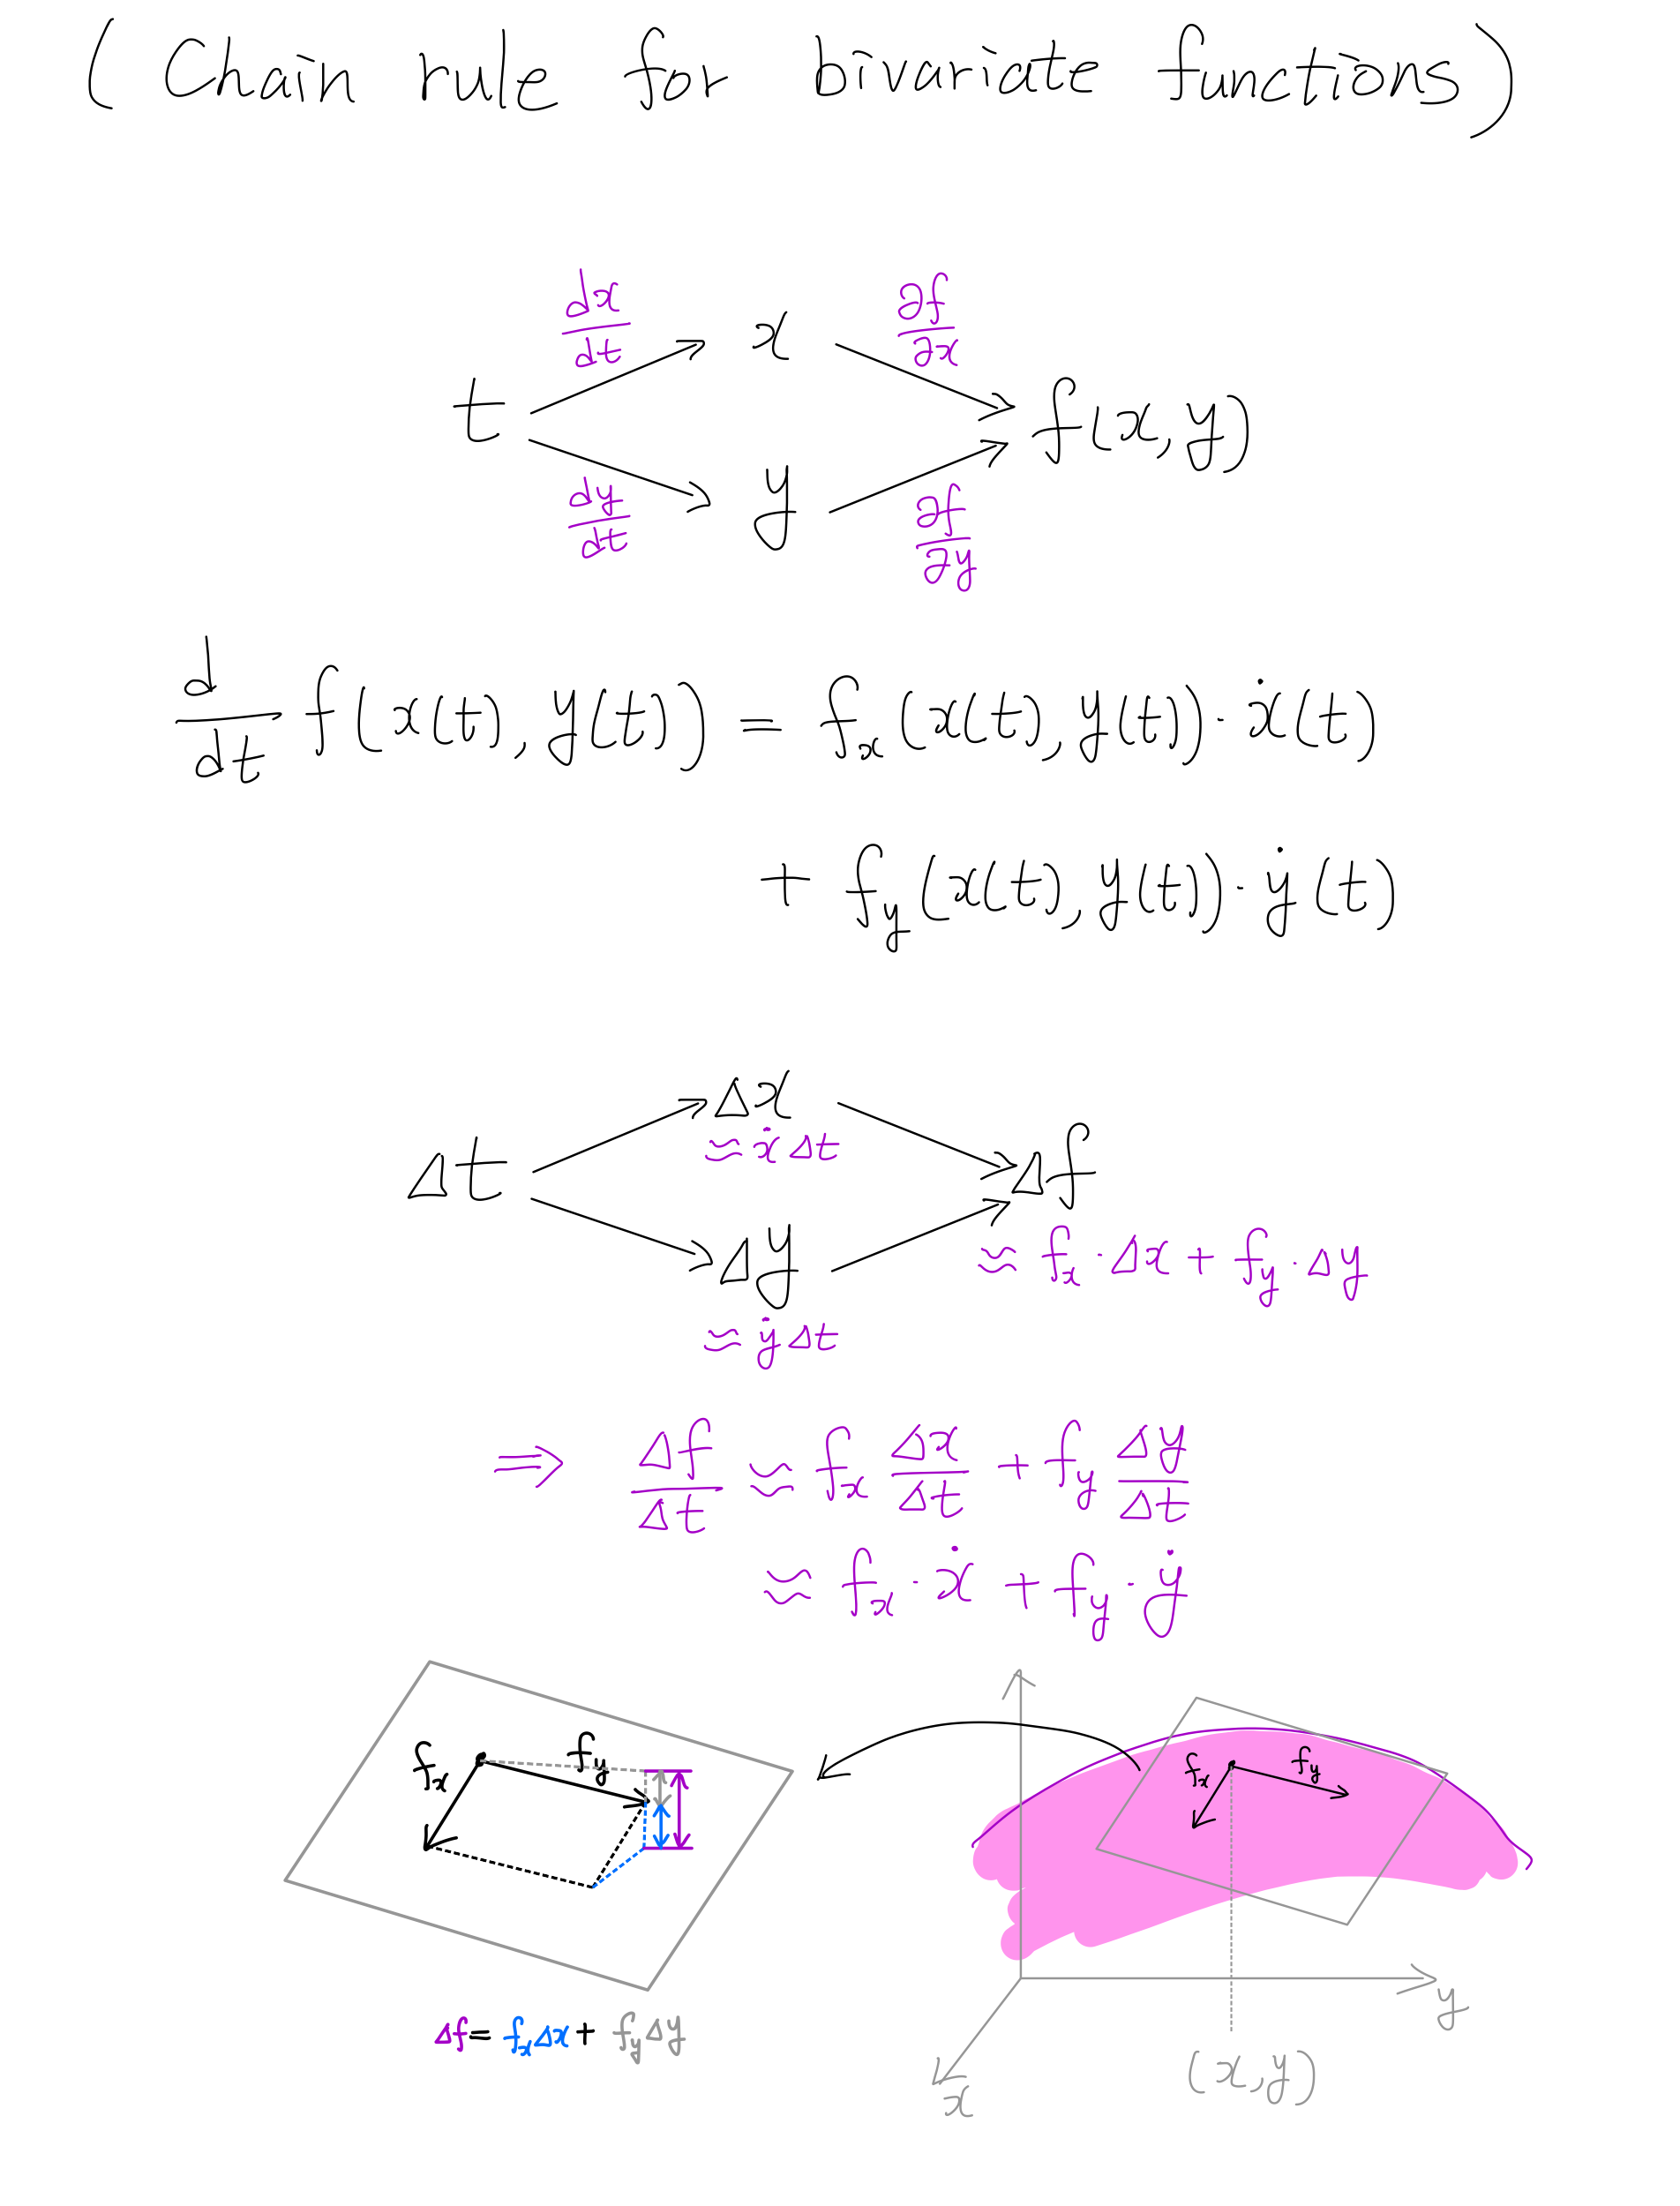 (Chain rule for bivariate functions)
dx/dt ∂f/∂x
x
t f(x,y)
y
dy/dt ∂f/∂y
d/dt f(x(t), y(t)) = f_x(x(t), y(t)) · ẋ(t)
+ f_y(x(t), y(t)) · ẏ(t)
Δx
≈ ẋΔt
Δt Δf
Δy ≈ f_x · Δx + f_y · Δy
≈ ẏΔt
⇒ Δf/Δt ≈ f_x Δx/Δt + f_y Δy/Δt
≈ f_x · ẋ + f_y · ẏ
f_x f_y
f_x f_y
Δf = f_xΔx + f_yΔy
y
(x,y)
x